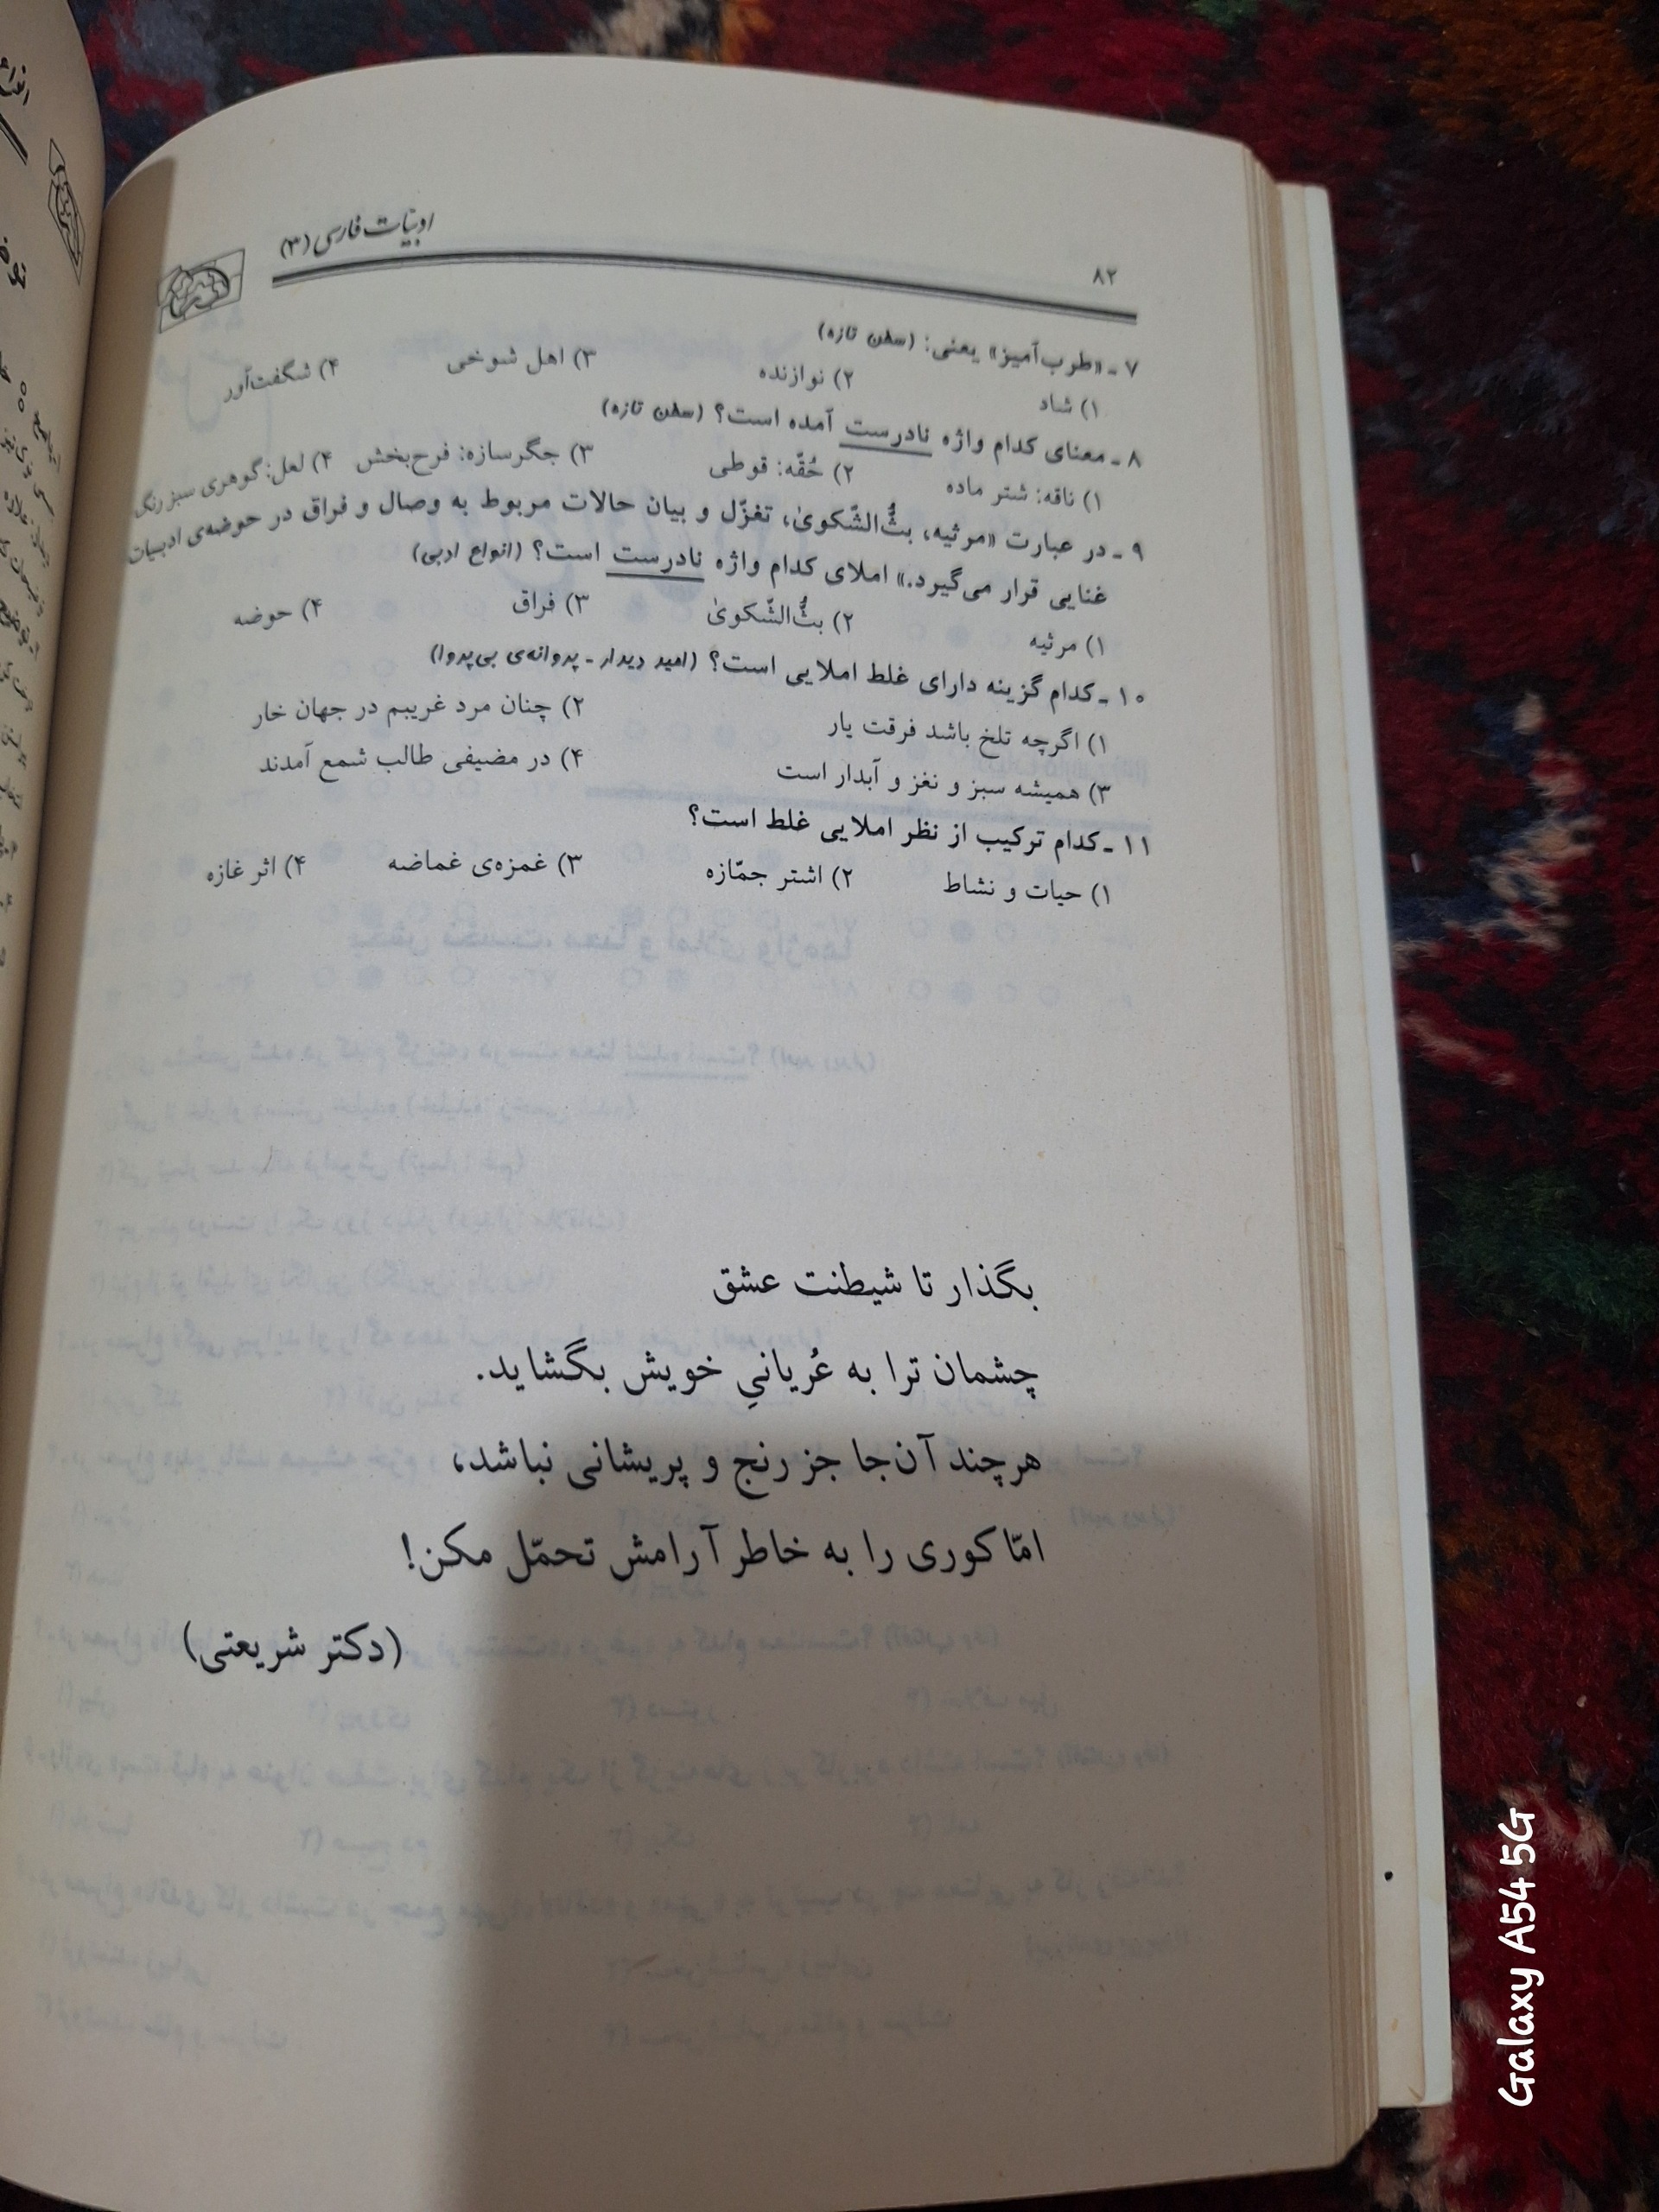 ادبیّات فارسی (۳)
۸۲
۷ـ «طرب‌آمیز» یعنی: (سخن تازه)
۱) شاد ۲) نوازنده ۳) اهل شوخی ۴) شگفت‌آور
۸ـ معنای کدام واژه نادرست آمده است؟ (سخن تازه)
۱) ناقه: شتر ماده ۲) حُقّه: قوطی ۳) جگرسازه: فرح‌بخش ۴) لعل: گوهری سبز رنگ
۹ـ در عبارت «مرثیه، بثُّ‌الشّکویٰ، تغزّل و بیان حالات مربوط به وصال و فراق در حوضه‌ی ادبیات
غنایی قرار می‌گیرد.» املای کدام واژه نادرست است؟ (انواع ادبی)
۱) مرثیه ۲) بثُّ‌الشّکویٰ ۳) فراق ۴) حوضه
۱۰ـ کدام گزینه دارای غلط املایی است؟ (امید دیدار ـ پروانه‌ی بی‌پروا)
۱) اگرچه تلخ باشد فرقت یار ۲) چنان مرد غریبم در جهان خار
۳) همیشه سبز و نغز و آبدار است ۴) در مضیفی طالب شمع آمدند
۱۱ـ کدام ترکیب از نظر املایی غلط است؟
۱) حیات و نشاط ۲) اشتر جمّازه ۳) غمزه‌ی غماضه ۴) اثر غازه
بگذار تا شیطنت عشق
چشمان ترا به عُریانیِ خویش بگشاید.
هرچند آن‌جا جز رنج و پریشانی نباشد،
امّا کوری را به خاطر آرامش تحمّل مکن!
(دکتر شریعتی)
Galaxy A54 5G